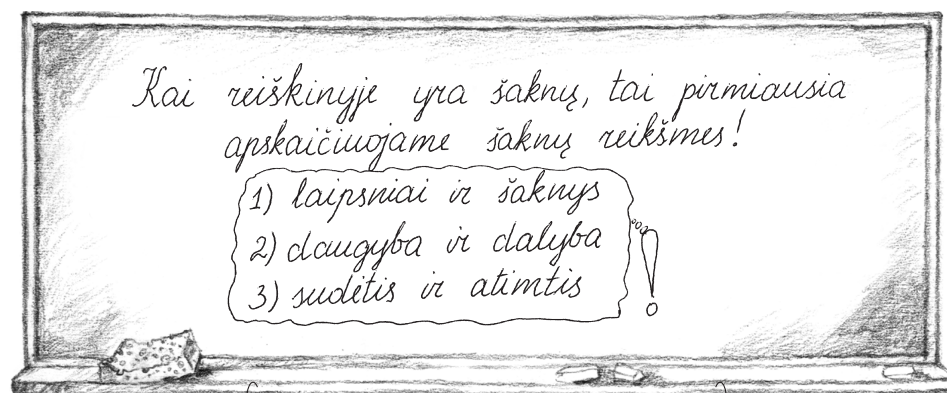 Kai reiškinyje yra šaknų, tai pirmiausia
apskaičiuojame šaknų reikšmes!
1) laipsniai ir šaknys
2) daugyba ir dalyba
3) sudėtis ir atimtis